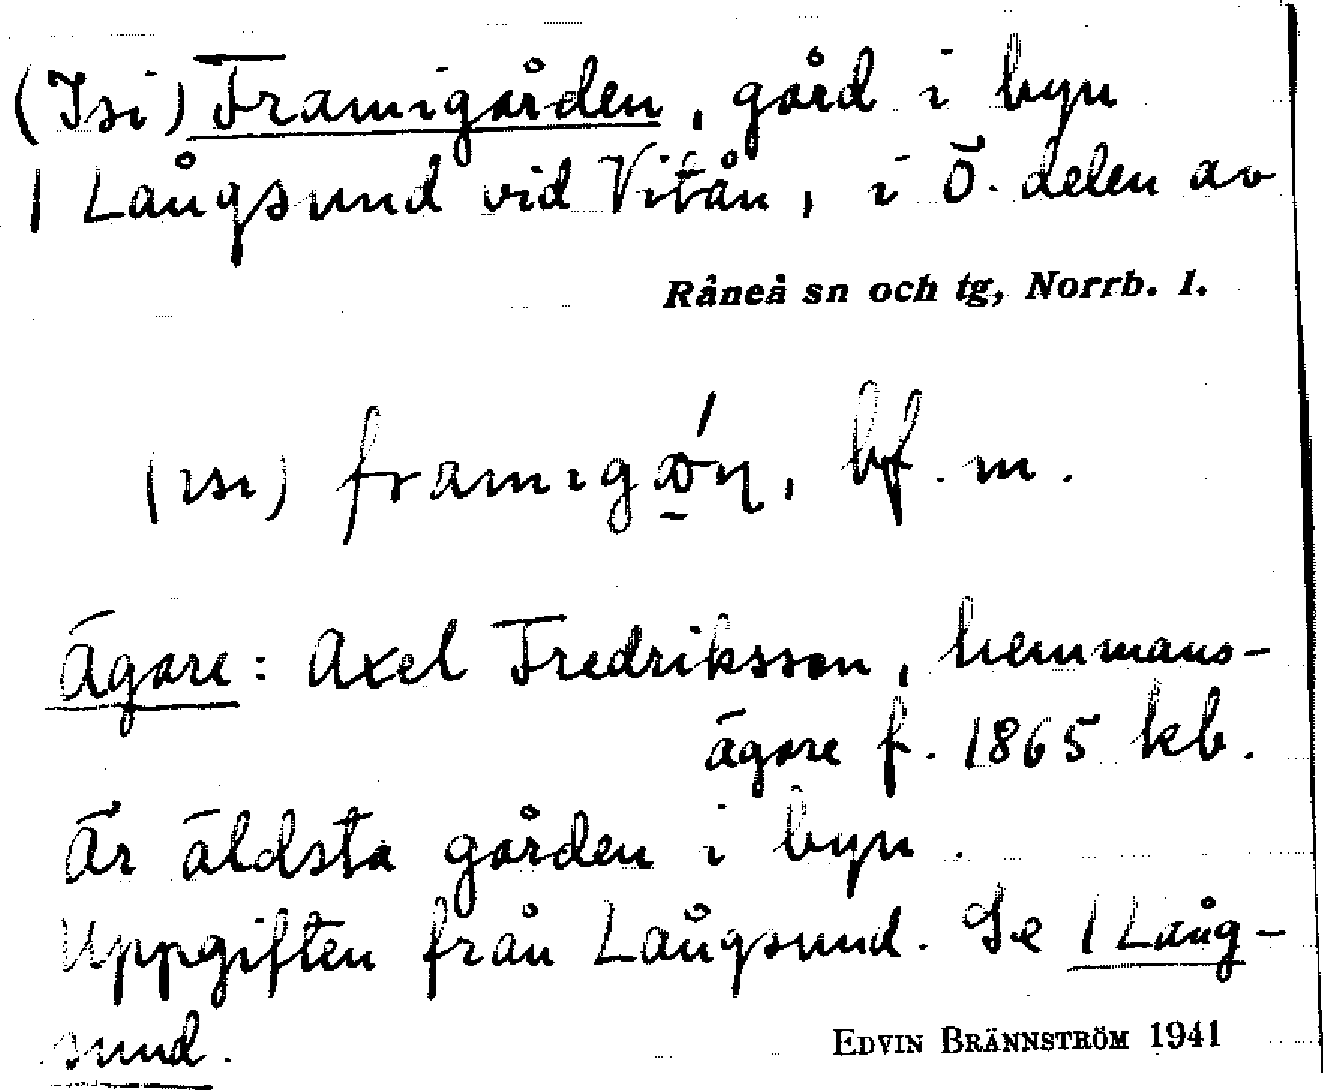 (Isi) Framigården, gård i byn
1 Långsund vid Vitån, i Ö. delen av
Råneå sn och tg, Norrb. l.
(ısı) framıgɷ̠́ɳ, bf. m.
Ägare: Axel Fredriksson, hemmans-
ägare f. 1865 kb.
Är äldsta gården i byn.
Uppgiften från Långsund. Se 1 Lång-
sund.
EDVIN BRÄNNSTRÖM 1941